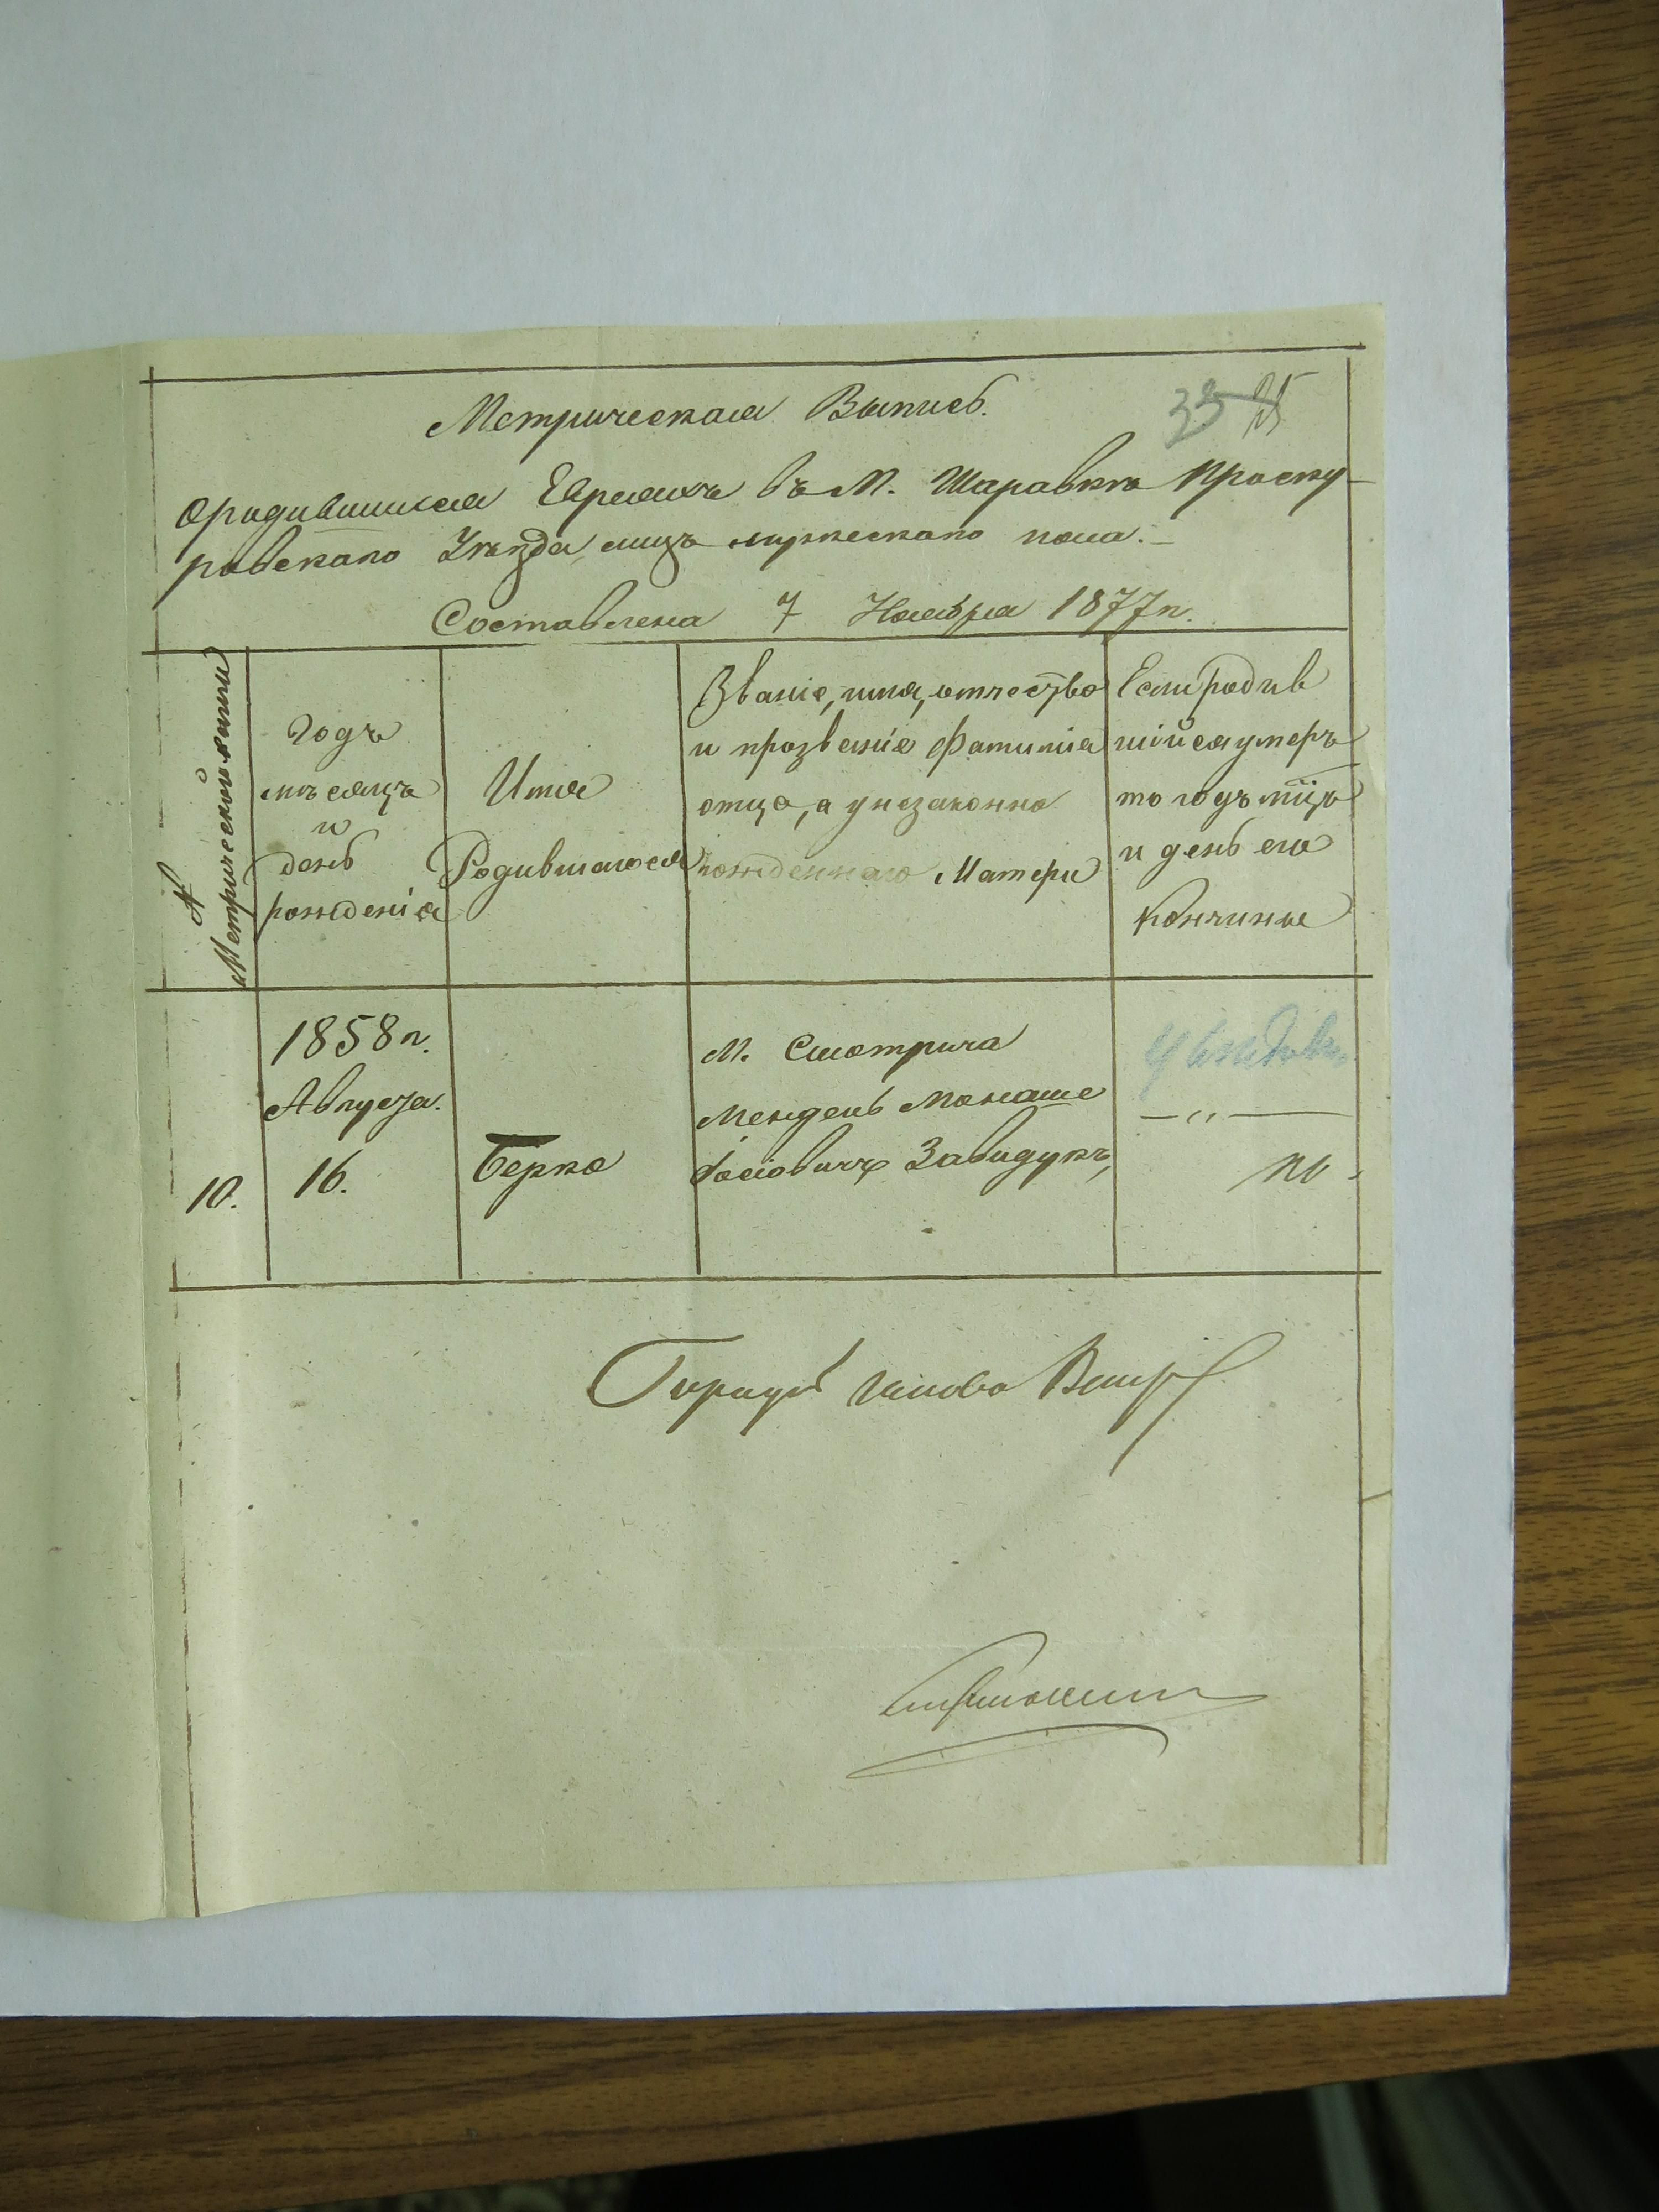 Метрическая Выпись.
33 25
о родившихся Евреяхъ въ М. Шаравкѣ Проску-
ровскаго Уѣзда, лицъ мужескаго пола.-
Составлена 7 Ноября 1877 г.
№ Метрической книги
Годъ
мѣсяцъ
и
день
рожденія
Имя
Родившагося
Званіе, имя, отчество
и прозваніе Фамилія
отца, а у незаконно
рожденнаго Матери
Если родив
шійся умеръ
то годъ мѣцъ
и день его
кончины
10.
1858 г.
Августа.
16.
Берко
М. Смотрича
Мендель Монаше
Іосіовичъ Завидукъ,
— „ —